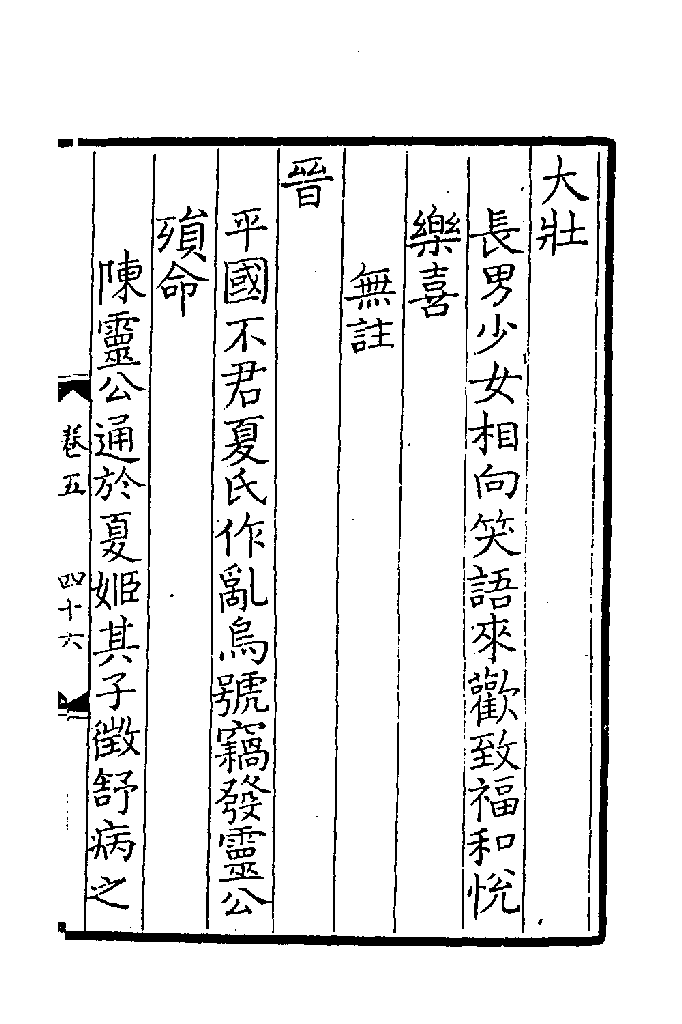 大壯
長男少女相向笑語來歡致福和悅
樂喜
無註
晉
平國不君夏氏作亂烏號竊發靈公
殞命
陳靈公通於夏姬其子徵舒病之
卷五 四十六